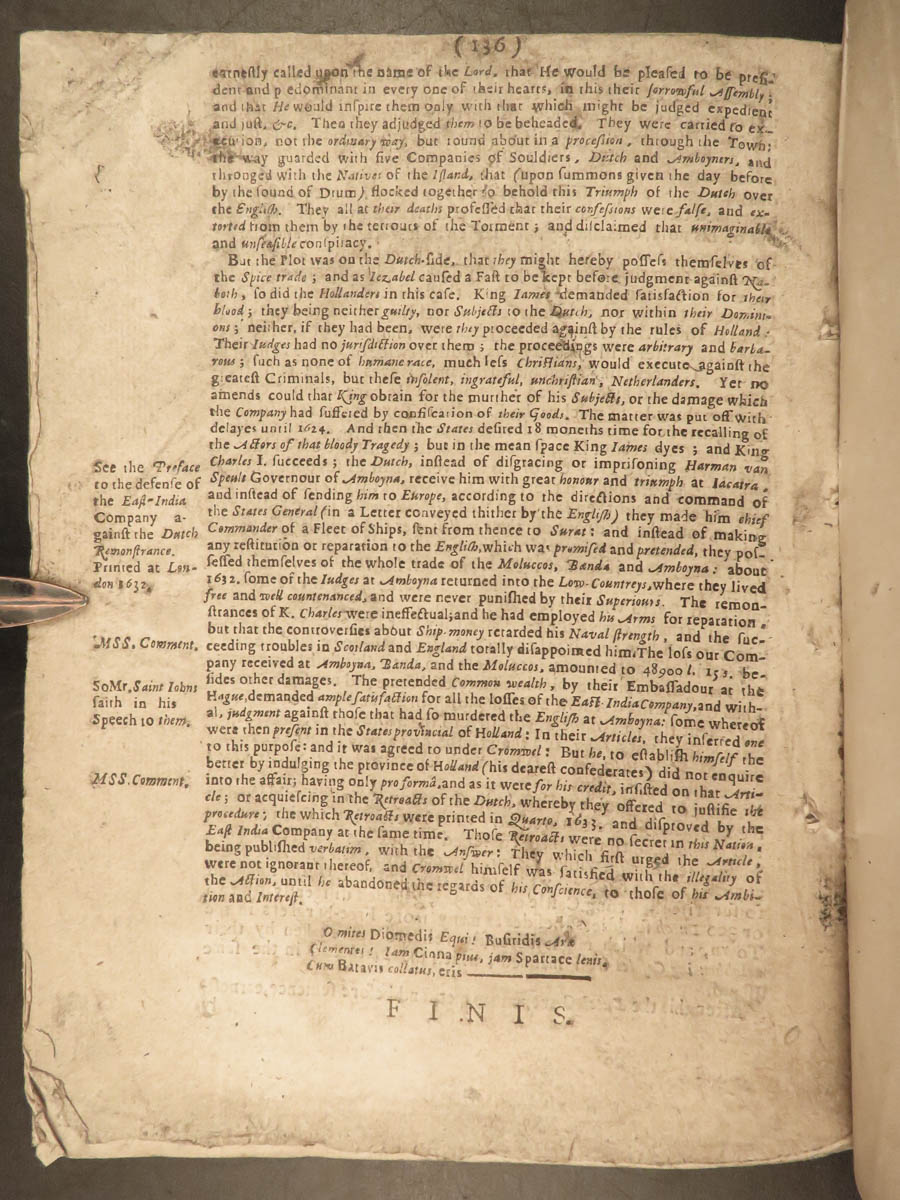 (136)
earneſtly called upon the name of the Lord, that He would be pleaſed to be preſi-
dent and p edominant in every one of their hearts, in this their ſorrowful Aſſembly;
and that He would inſpire them only with that which might be judged expedient
and juſt, &c. Then they adjudged them to be beheaded. They were carried to ex-
ecution, not the ordinary way, but round about in a proceſſion, through the Town;
the way guarded with five Companies of Souldiers, Dutch and Amboyners, and
thronged with the Natives of the Iſland, that (upon ſummons given the day before
by the ſound of Drum) flocked together to behold this Triumph of the Dutch over
the Engliſh. They all at their deaths profeſſed that their confeſſions were falſe, and ex-
torted from them by the terrours of the Torment; and diſclaimed that unimaginable
and unfeaſible conſpiracy.
But the Plot was on the Dutch-ſide, that they might hereby poſſeſs themſelves of
the Spice trade; and as Iezabel cauſed a Faſt to be kept before judgment againſt Na-
both, ſo did the Hollanders in this caſe. King Iames demanded ſatisfaction for their
blood; they being neither guilty, nor Subjects to the Dutch, nor within their Domini-
ons; neither, if they had been, were they proceeded againſt by the rules of Holland:
Their Iudges had no juriſdiction over them; the proceedings were arbitrary and barba-
rous; ſuch as none of humane race, much leſs Chriſtians, would execute againſt the
greateſt Criminals, but theſe inſolent, ingrateful, unchriſtian, Netherlanders. Yet no
amends could that King obtain for the murther of his Subjects, or the damage which
the Company had ſuffered by confiſcation of their Goods. The matter was put off with
delayes until 1624. And then the States deſired 18 moneths time for the recalling of
the Actors of that bloody Tragedy; but in the mean ſpace King Iames dyes; and King
Charles I. ſucceeds; the Dutch, inſtead of diſgracing or impriſoning Harman van
Speult Governour of Amboyna, receive him with great honour and triumph at Iacatra,
and inſtead of ſending him to Europe, according to the directions and command of
the States General (in a Letter conveyed thither by the Engliſh) they made him chief
Commander of a Fleet of Ships, ſent from thence to Surat: and inſtead of making
any reſtitution or reparation to the Engliſh, which was promiſed and pretended, they poſ-
ſeſſed themſelves of the whole trade of the Moluccos, Banda and Amboyna: about
1632. ſome of the Iudges at Amboyna returned into the Low-Countreys, where they lived
free and well countenanced, and were never puniſhed by their Superiours. The remon-
ſtrances of K. Charles were ineffectual; and he had employed his Arms for reparation,
but that the controverſies about Ship-money retarded his Naval ſtrength, and the ſuc-
ceeding troubles in Scotland and England totally diſappointed him. The loſs our Com-
pany received at Amboyna, Banda, and the Moluccos, amounted to 48900 l. 15 s. be-
ſides other damages. The pretended Common wealth, by their Embaſſadour at the
Hague, demanded ample ſatiſfaction for all the loſſes of the Eaſt-India Company, and with-
al, judgment againſt thoſe that had ſo murdered the Engliſh at Amboyna: ſome whereof
were then preſent in the States provincial of Holland: In their Articles, they inſerted one
to this purpoſe: and it was agreed to under Cromwel: But he, to eſtabliſh himſelf the
better by indulging the province of Holland (his deareſt confederates) did not enquire
into the affair; having only pro formâ, and as it were for his credit, inſiſted on that Arti-
cle; or acquieſcing in the Retroacts of the Dutch, whereby they offered to juſtifie the
procedure; the which Retroacts were printed in Quarto, 1633. and diſproved by the
Eaſt India Company at the ſame time. Thoſe Retroacts were no ſecret in this Nation,
being publiſhed verbatim, with the Anſwer: They which firſt urged the Article,
were not ignorant thereof, and Cromwel himſelf was ſatisfied with the illegality of
the Action, until he abandoned the regards of his Conſcience, to thoſe of his Ambi-
tion and Intereſt.
See the Preface
to the defenſe of
the Eaſt-India
Company a-
gainſt the Dutch
Remonſtrance.
Printed at Lon-
don 1632.
MSS. Comment.
So Mr. Saint Iohns
ſaith in his
Speech to them.
MSS. Comment.
O mites Diomedis Equi! Buſiridis Aræ
Clementes! Iam Cinna pius, jam Spartace lenis,
Cum Batavis collatus, eris
FINIS.